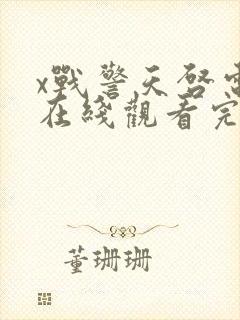 x戰警天啓電
在綫觀看完
董珊珊